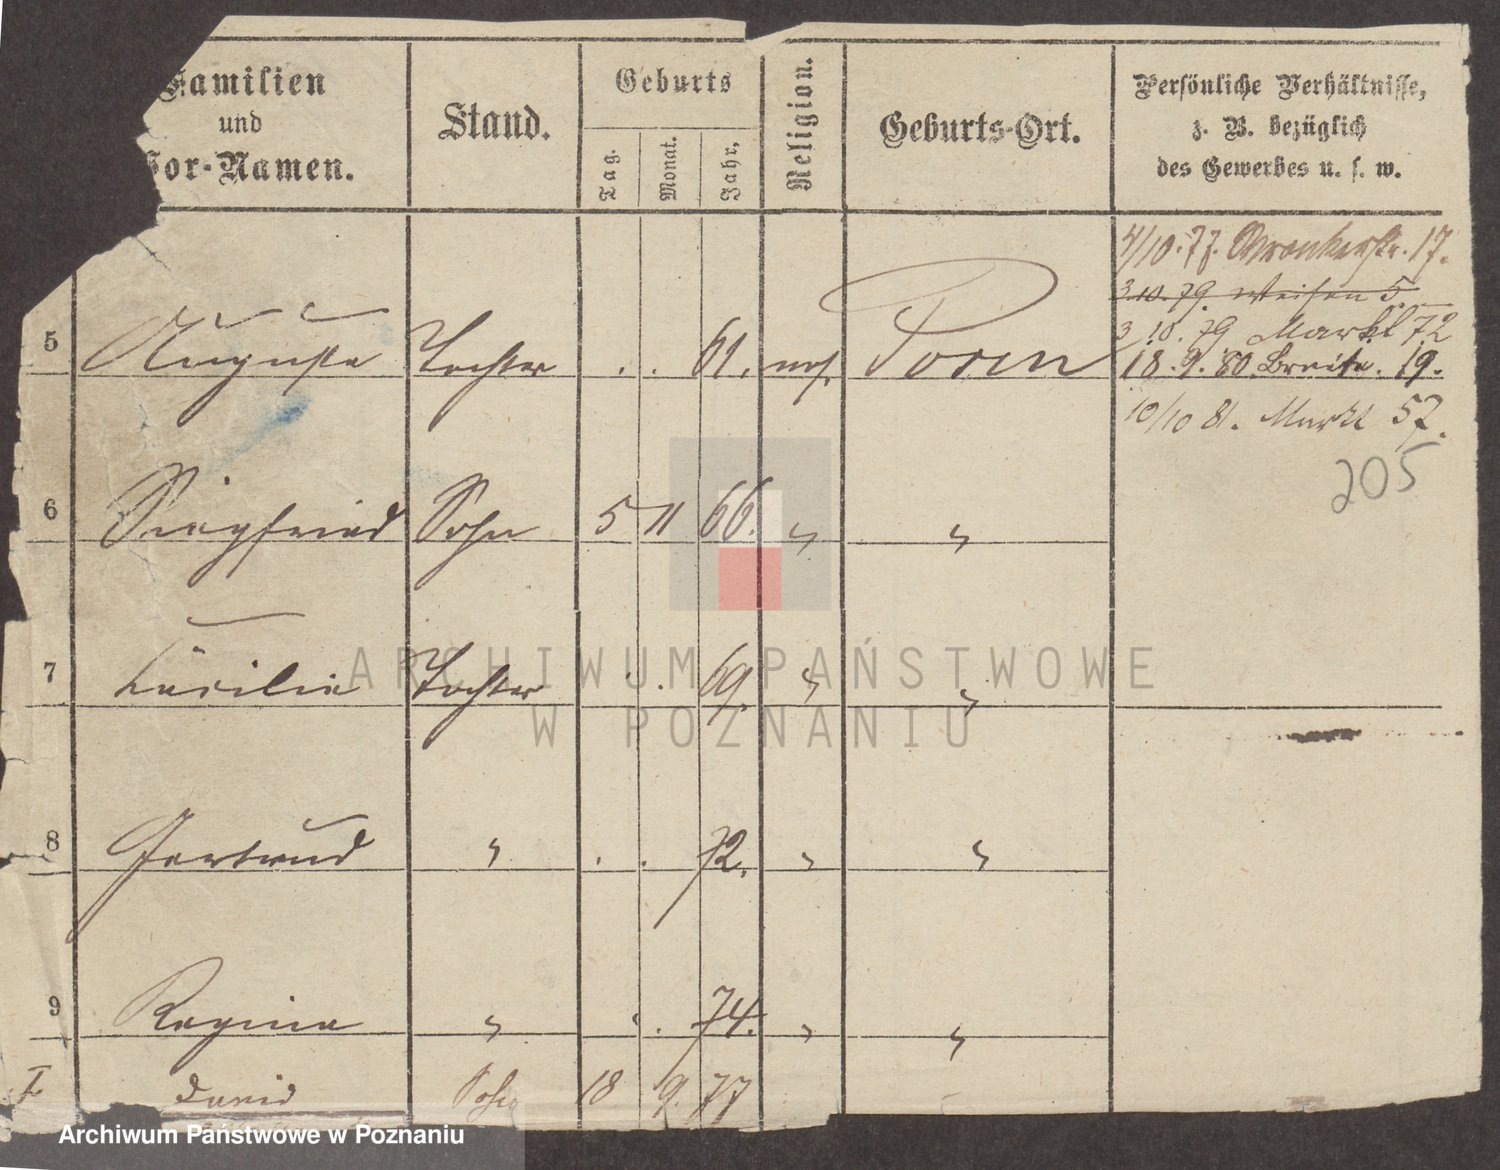 Familien
und
Vor-Namen.
Stand.
Geburts
Tag.
Monat.
Jahr,
Religion.
Geburts-Ort.
Persönliche Verhältnisse,
z. B. bezüglich
des Gewerbes u. s. w.
4/10.77. Wronkerstr. 17.
3 10. 79. 5
3 10. 79 Markt 72
5 Auguste Tochter . . 61. mos. Posen
18. 9. 80. Breite. 19.
10/10 81. Markt 57.
205
6 Siegfried Sohn 5 11 66. " "
7 Cäcilie Tochter . . 69. " "
8 Gertrud " . . 72. " "
9 Regina " . . 74. " "
I. David Sohn 18 9. 77
ARCHIWUM PAŃSTWOWE
W POZNANIU
Archiwum Państwowe w Poznaniu